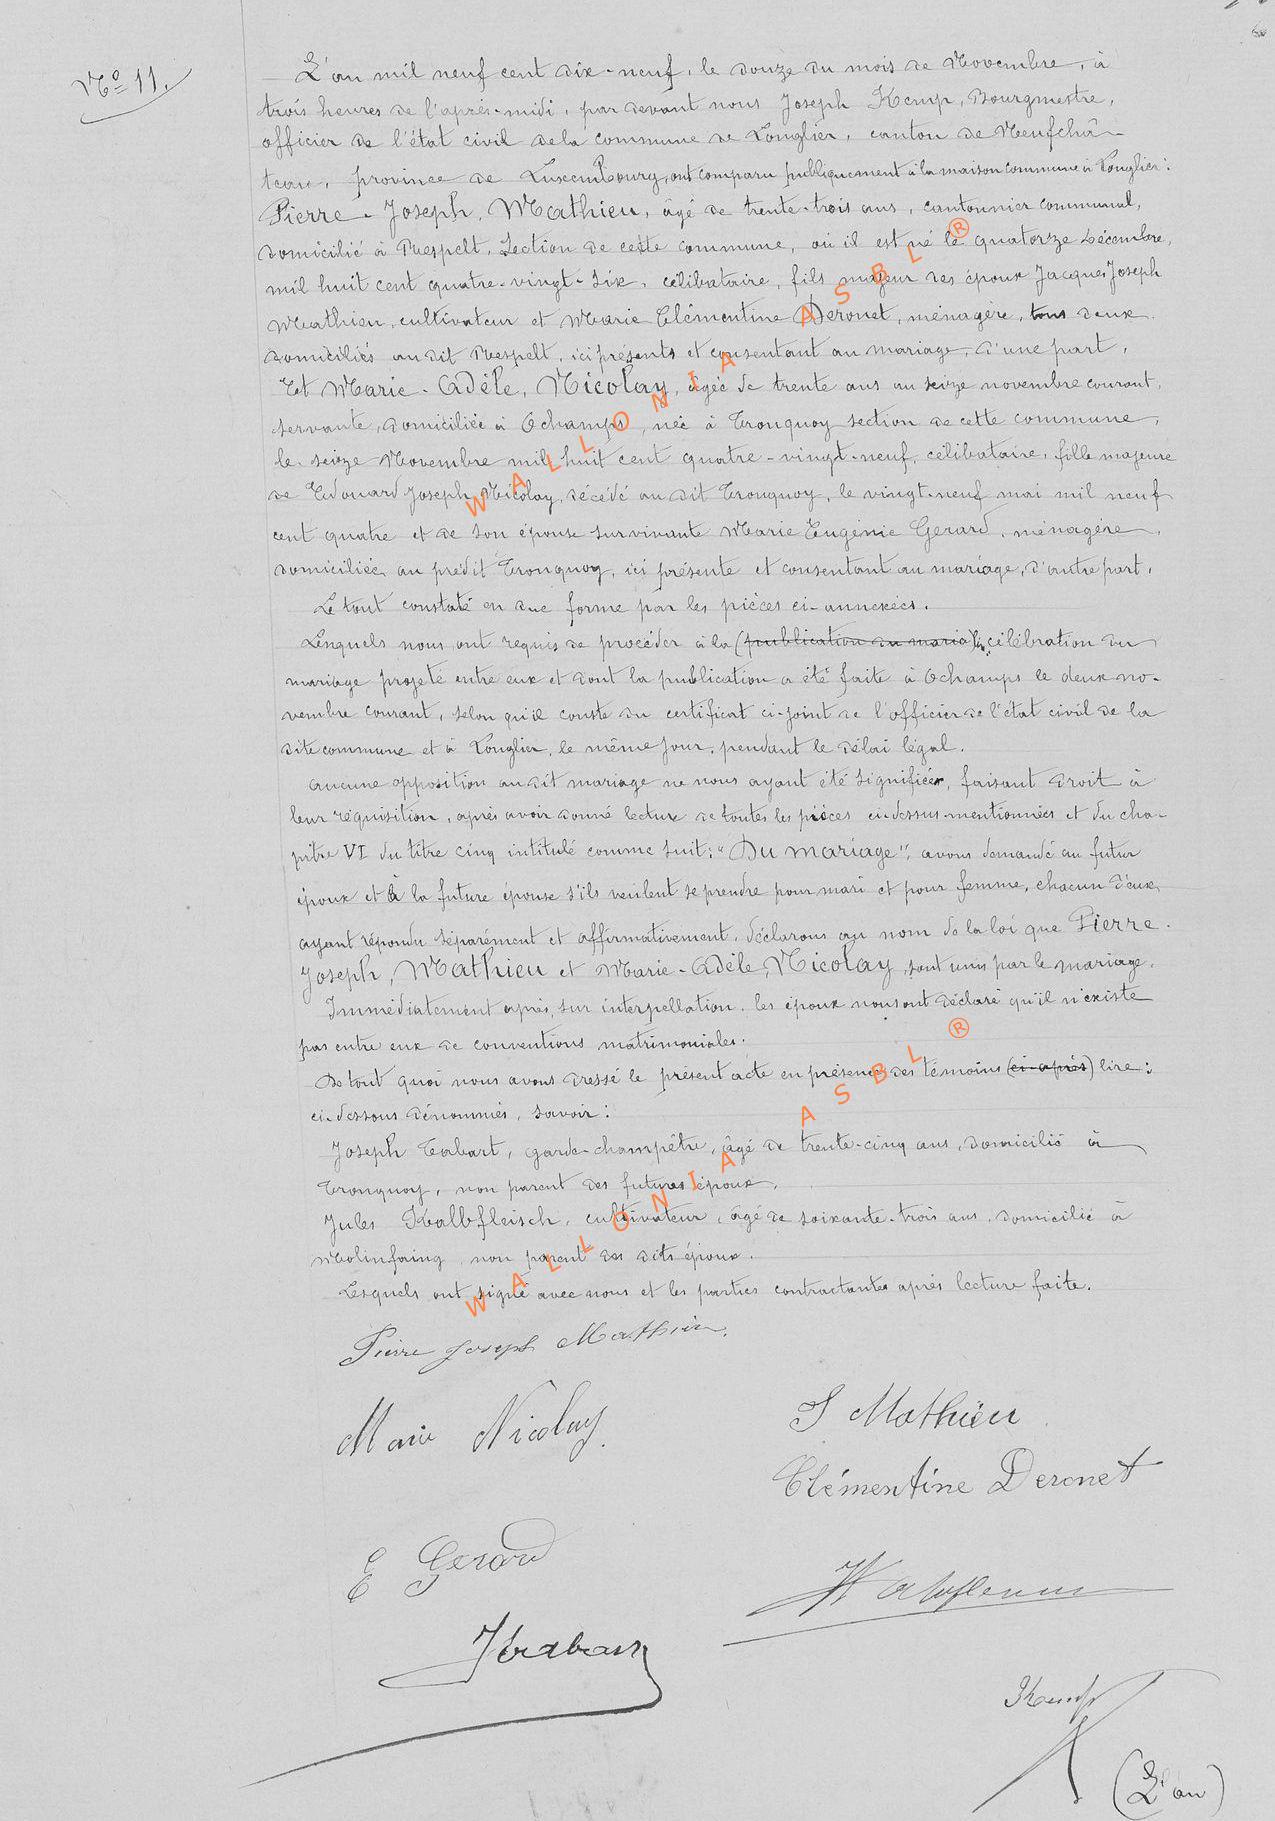 No 11.
L'an mil neuf cent dix-neuf, le douze du mois de Novembre, à
trois heures de l'après-midi, par devant nous Joseph Kemp, Bourgmestre,
officier de l'état civil de la commune de Longlier, canton de Neufchâ-
teau, province de Luxembourg, ont comparu publiquement à la maison commune à Longlier:
Pierre-Joseph, Mathieu, âgé de trente-trois ans, cantonnier communal,
domicilié à Respelt, Section de cette commune, où il est né le quatorze décembre,
mil huit cent quatre-vingt-six, célibataire, fils majeur des époux Jacques Joseph
Mathieu, cultivateur et Marie Clémentine Deronet, ménagère, tous deux
domiciliés au dit Respelt, ici présents et consentant au mariage, d'une part,
Et Marie-Adèle, Nicolay, âgée de trente ans au seize novembre courant,
servante, domiciliée à Ochamps, née à Tronquoy section de cette commune,
le seize Novembre mil huit cent quatre-vingt-neuf, célibataire, fille majeure
de Edouard Joseph Nicolay, décédé au dit Tronquoy, le vingt-neuf mai mil neuf
cent quatre et de son épouse survivante Marie Eugénie Gerard, ménagère,
domiciliée au prédit Tronquoy, ici présente et consentant au mariage, d'autre part.
Le tout constaté en due forme par les pièces ci-annexées.
Lesquels nous ont requis de procéder à la (publication du maria) célébration du
mariage projeté entre eux et dont la publication a été faite à Ochamps le deux no-
vembre courant, selon qu'il conste du certificat ci-joint de l'officier de l'état civil de la
dite commune et à Longlier, le même jour, pendant le délai légal.
Aucune opposition au dit mariage ne nous ayant été signifiée, faisant droit à
leur réquisition, après avoir donné lecture de toutes les pièces ci-dessus mentionnées et du cha-
pitre VI du titre cinq intitulé comme suit: "Du mariage", avons demandé au futur
époux et à la future épouse s'ils veulent se prendre pour mari et pour femme, chacun d'eux
ayant répondu séparément et affirmativement, déclarons au nom de la loi que Pierre-
Joseph, Mathieu et Marie-Adèle, Nicolay, sont unis par le mariage.
Immédiatement après, sur interpellation, les époux nous ont déclaré qu'il n'existe
pas entre eux de conventions matrimoniales.
De tout quoi nous avons dressé le présent acte en présence des témoins (ci-après) lire:
ci-dessous dénommés, savoir:
Joseph Trabart, garde-champêtre, âgé de trente-cinq ans, domicilié à
Tronquoy, non parent des futures époux,
Jules Kalbfleisch, cultivateur, âgé de soixante-trois ans, domicilié à
Molinfaing, non parent des dits époux.
Lesquels ont signé avec nous et les parties contractantes après lecture faite.
Pierre Joseph Mathieu.
J Mathieu
Marie Nicolay.
Clémentine Deronet
E Gerard
Kemp
(L'an)
WALLONIA ASBL ®
WALLONIA ASBL ®